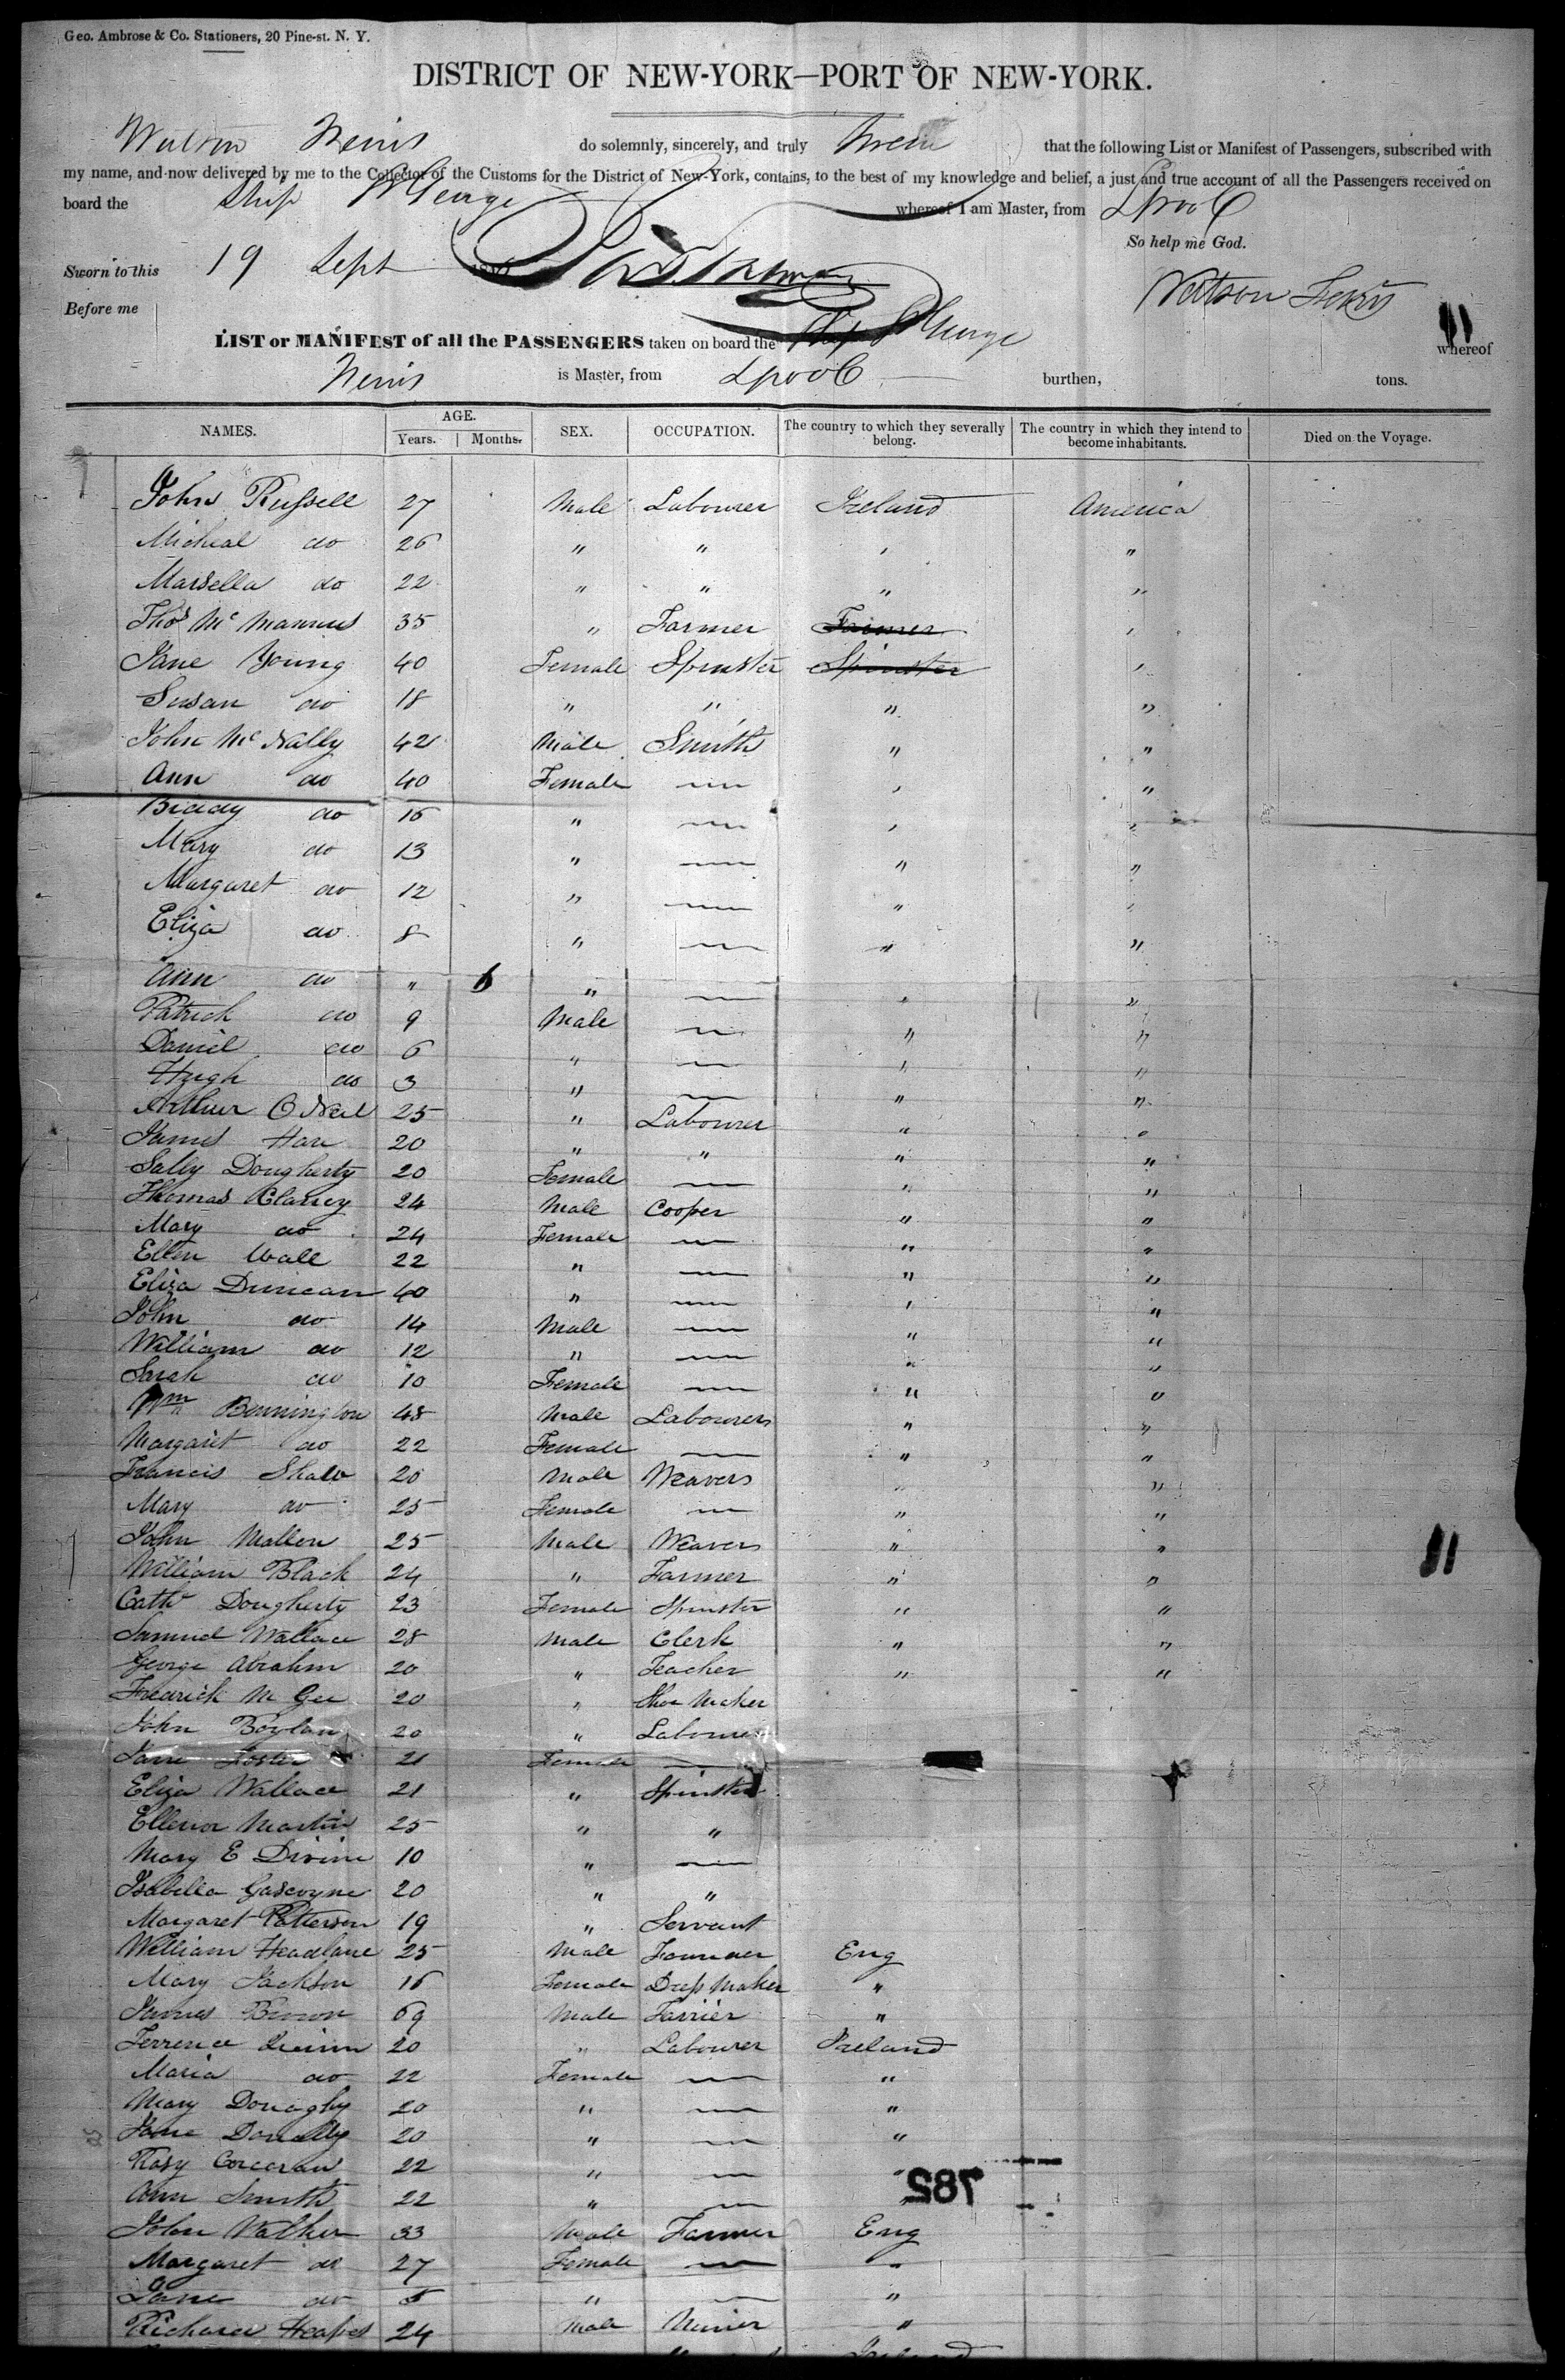 Geo. Ambrose & Co. Stationers, 20 Pine-st. N. Y.
DISTRICT OF NEW-YORK—PORT OF NEW-YORK.
do solemnly, sincerely, and truly that the following List or Manifest of Passengers, subscribed with
my name, and now delivered by me to the Collector of the Customs for the District of New-York, contains, to the best of my knowledge and belief, a just and true account of all the Passengers received on
board the Ship St George whereof I am Master, from Lpool
So help me God.
Sworn to this 19 Sept
Watson
Before me
LIST or MANIFEST of all the PASSENGERS taken on board the Ship St George whereof
is Master, from Lpool burthen, tons.
NAMES. AGE. Years. Months. SEX. OCCUPATION. The country to which they severally belong. The country in which they intend to become inhabitants. Died on the Voyage.
John Russell 27 Male Labourer Ireland America
Micheal do 26 " " " "
Marsella do 22 " " " "
Thos McMannus 35 " Farmer Farmer "
Jane Young 40 Female Spinster Spinster "
Susan do 18 " " " "
John McNally 42 Male Smith " "
Ann do 40 Female — " "
Biddy do 16 " — " "
Mary do 13 " — " "
Margaret do 12 " — " "
Eliza do 8 " — " "
Ann do " 6 " — " "
Patrick do 9 Male — " "
Daniel do 6 " — " "
Hugh do 3 " — " "
Arthur O Neil 25 " Labourer " "
James Hare 20 " " " "
Sally Dougherty 20 Female — " "
Thomas Clancy 24 Male Cooper " "
Mary do 24 Female — " "
Ellen Wall 22 " — " "
Eliza Duncan 40 " — " "
John do 14 Male — " "
William do 12 " — " "
Sarah do 10 Female — " "
Wm Bennington 48 Male Labourers " "
Margaret do 22 Female — " "
Francis Shaw 20 Male Weavers " "
Mary do 25 Female — " "
John Mallon 25 Male Weavers " "
William Black 24 " Farmer " "
Cath Dougherty 23 Female Spinster " "
Samuel Wallace 28 Male Clerk " "
George Abrahm 20 " Teacher " "
Fredrick M Gee 20 " Shoe Maker
John Boylan 20 " Labourer
Jane Foster 21 Female —
Eliza Wallace 21 " Spinster
Ellenor Martin 25 " "
Mary E Divine 10 " —
Isabella Gascoyne 20 " "
Margaret Patterson 19 " Servant
William Headlane 25 Male Eng
Mary Jackson 16 Female Dress Maker "
James Brown 69 Male Farrier "
Terrence Quinn 20 " Labourer Ireland
Maria do 22 Female — "
Mary Donaghy 20 " — "
Jane Donally 20 " — "
Rosy Corcoran 22 " —
Ann Smith 22 " —
782
John Walker 33 Male Farmer Eng
Margaret do 27 Female — "
Jane do 5 " — "
Richard Heapes 24 Male "
Ireland